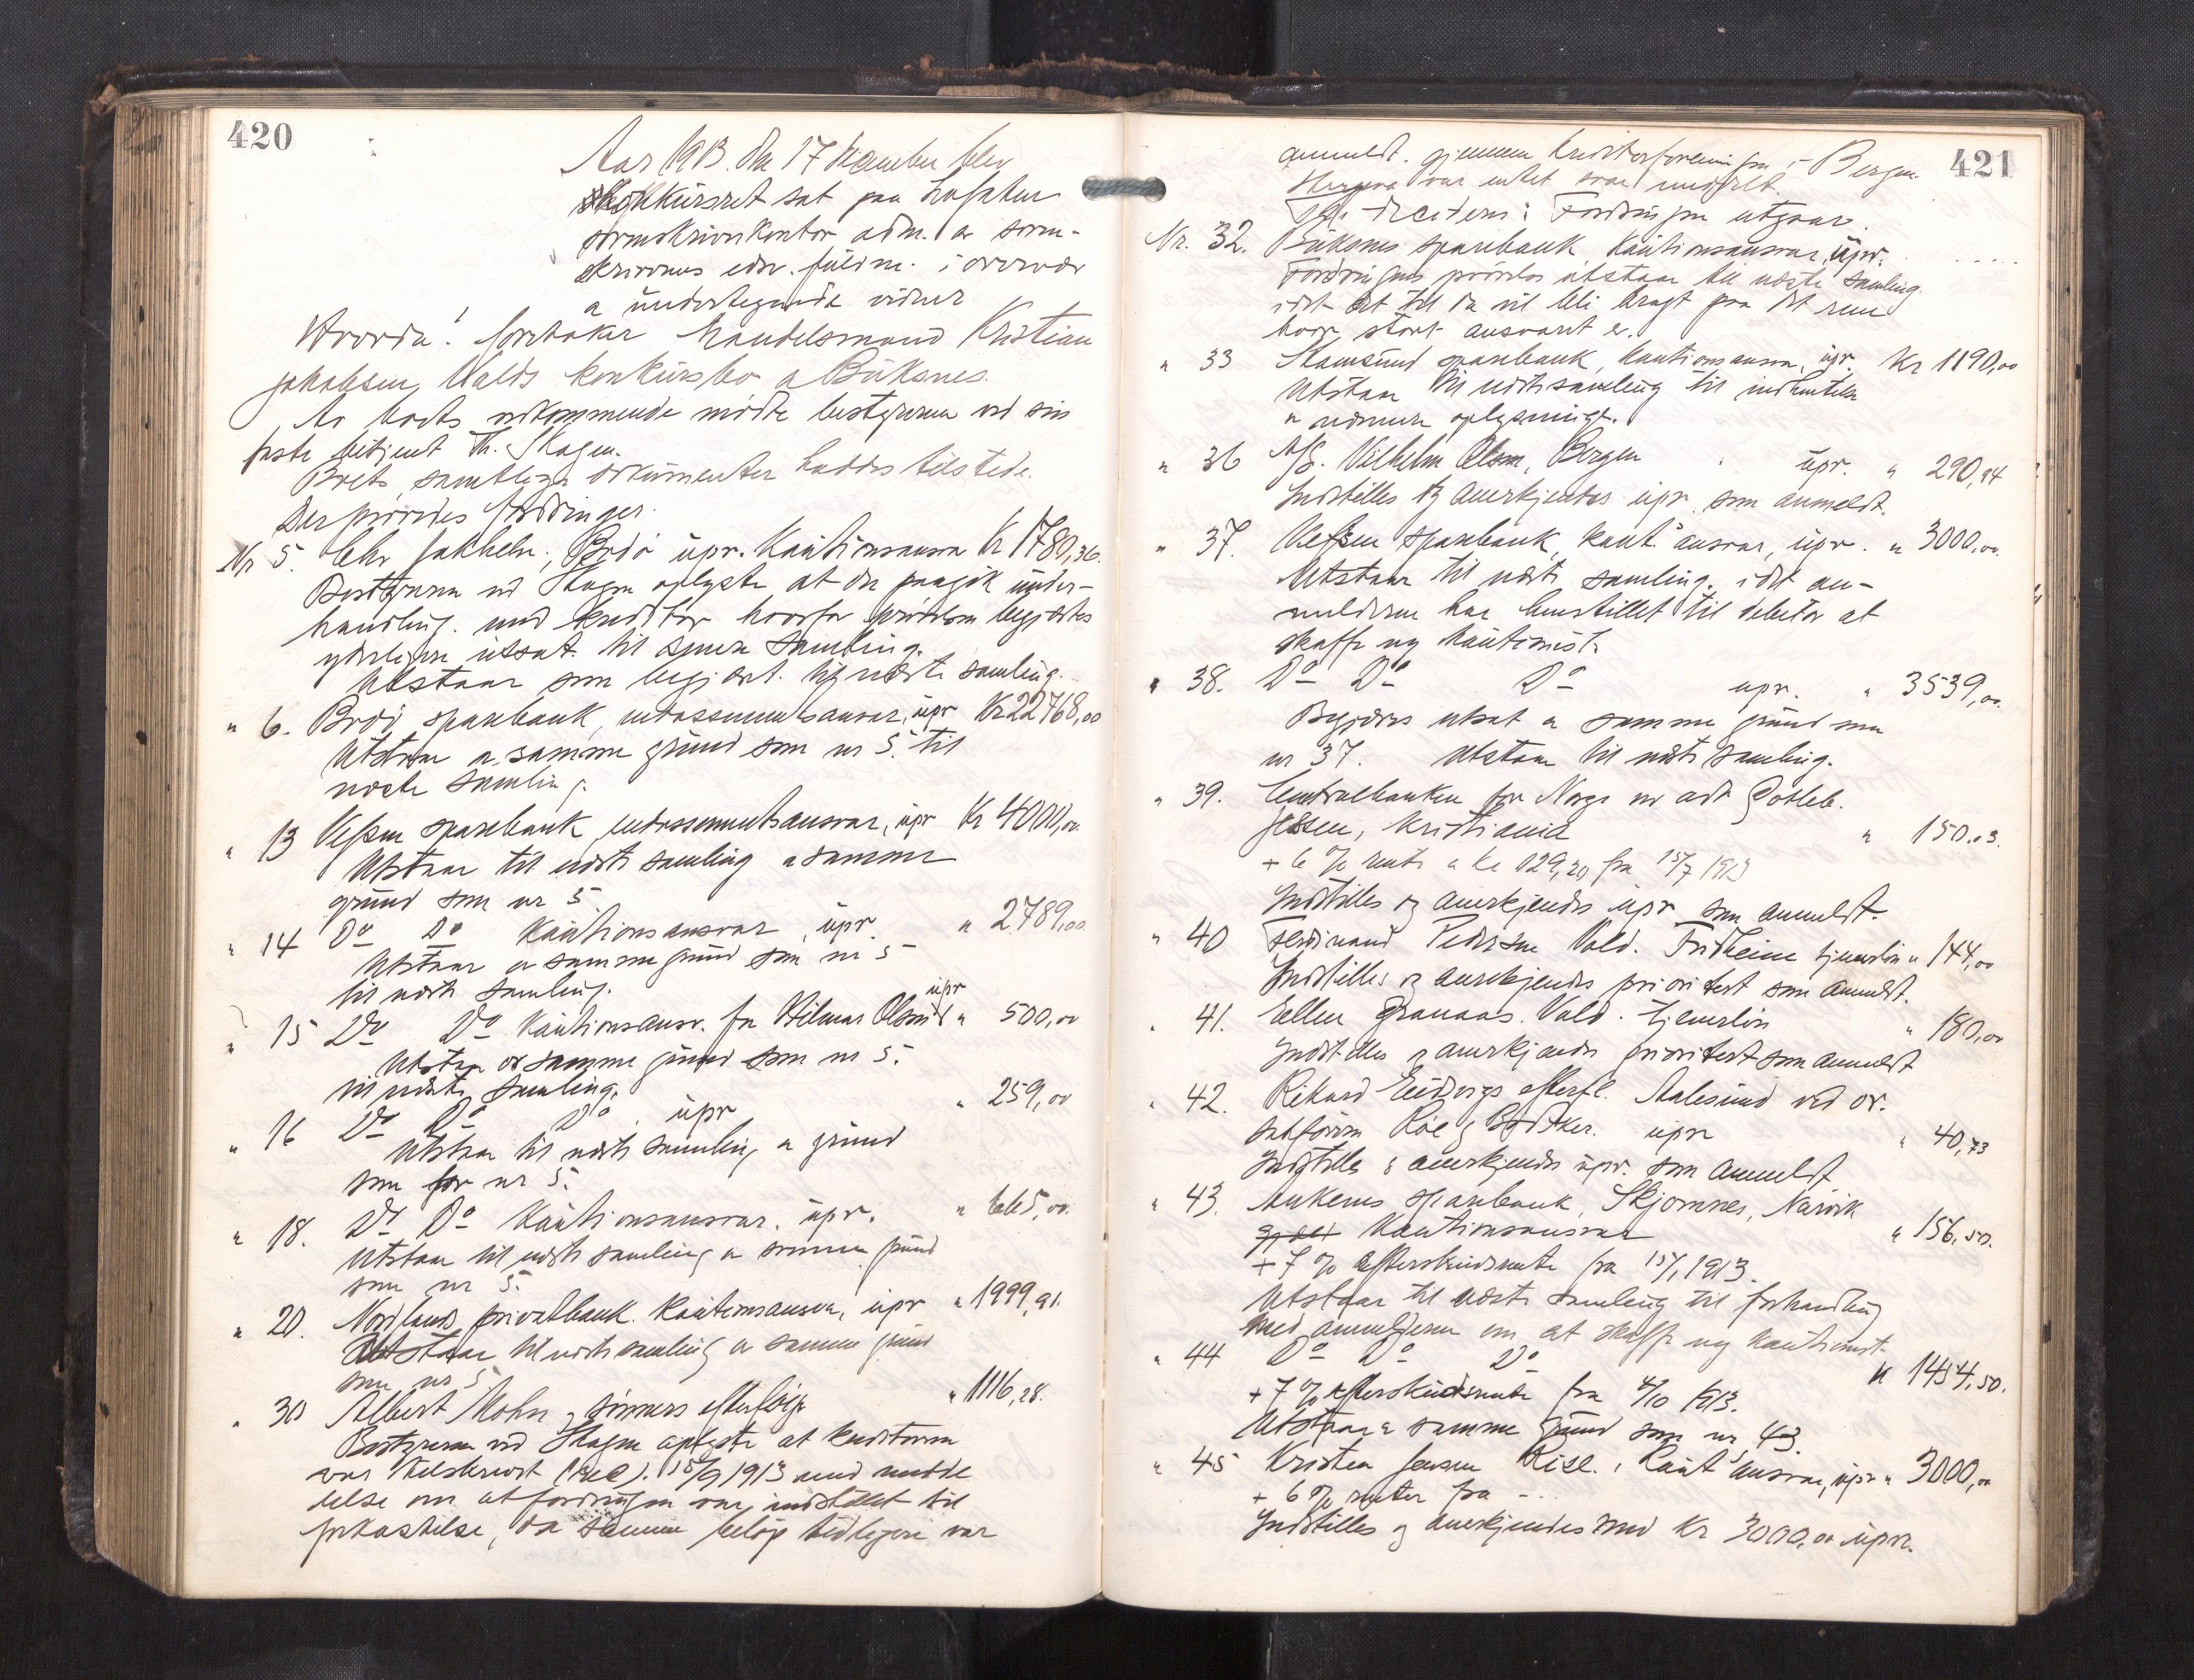 420
Aar 1913 den 17 december blev
skifkursret sat paa Lofoten
sorenskriverkontor adm. av soren-
skriverens edsv. fuldm. i overvær
a undertegnede vidner
Hvorda! foretokes handelsmand Kristian
Jakobsen, Valds konkursbo a Buksnes.
Av boets vedkommende mødte bestyreren ved sin
faste betjent Th. Skagen.
Boets samtlige dokumenter haddes tilstede.
Der prøvedes fordringer.
Nr 5. Chr Jakhelln, Bodø upr. Kautionsansvar Kr 1780,36.
Bestyreren ved Skagen oplyste at der paagik under-
handling med kreditor hvorfor prøvelsen begjærtes
yderligere utsat til senere samling.
Utstaar som begjært til næste samling.
" 6. Bodø sparebank, endossementsansvar, upr Kr 22768,00
Utstaar a samme grund som nr 5. til
næste samling.
" 13 Vefsen sparebank endossementsansvar, upr Kr 4000,00
Utstaar til næste samling a samme
grund som nr 5
" 14 Do Do Kautionsansvar, upr. " 2789,00
Utstaar a samme grund som nr 5
til næste samling.
upr
" 15 Do Do Kautionsansv. for Hilmar Olsen " 500,00
Utstaar a samme grund som nr 5.
til næste samling.
" 16 Do Do Do upr " 259,00
Utstaar til næste samling a grund
som for nr 5.
" 18. Do Do Kautionsansvar. upr. " 665,00
Utstaar til næste samling a samme grund
som nr 5.
" 20. Nordlands privatbank. Kautionsansvar, upr " 1999,91.
Utstaar til næste samling a samme grund
som nr 5
" 30 Albert Mohn sønners efterfølger " 1116,28.
Bestyreren ved Skagen oplyste at kreditoren
var tilskrevet (rec). 15/9 1913 med medde
lelse om at fordringen var indstillet til
forkastelse, da samme beløp tidligere var
421
anmeldt gjennem kreditorforeningen i Bergen.
Herpaa var intet svar indløpet.
Fordringen utgaar.
Nr. 32. Buksnes sparebank, Kautionsansvar, upr. .....
Fordringens prøvelse utstaar til næste samling
idet det til da vil bli bragt paa det rene
hvor stort ansvaret er.
" 33 Stamsund sparebank, kautionsansvar, upr. Kr 1190,00
Utstaar til næste samling til indhentelse
a nærmere oplysninger.
" 36 A/S. Vilhelm Olsen, Bergen upr. " 290,94
Indstilles og anerkjendes upr. som anmeldt.
" 37. Vefsen sparebank, kaut. ansvar, upr. " 3000,00.
Utstaar til næste samling. idet an-
melderne har henstillet til debitor at
skaffe ny kautionist.
" 38. Do Do Do upr. " 3539,00.
Begjæres utsat a samme grund som
nr 37. Utstaar til næste samling.
" 39. Centralbanken for Norge ved adv Gotleb.
Jessen, Kristiania " 150.03.
+ 6 % rente a kr 129,20 fra 15/7 1913
Indstilles og anerkjendes upr som anmeldt.
" 40 Ferdinand Pedersen Vold. Fridheim tjenerløn " 144,00
Indstilles og anerkjendes prioritert som anmeldt.
" 41. Ellen Granaas. Vald. tjenerløn " 180,00
Indstilles og anerkjendes prioritert som anmeldt
" 42. Rikard Eidsvigs efterfl. Aalesund ved or.
sakfører Roe & Bødtker. upr " 40,73
Indstilles & anerkjendes upr. som anmeldt
" 43. Ankenes sparebank, Skjomnes, Narvik
Kautionsansvar " 156,50.
+ 7 % efterskudsrente fra 15/1 1913.
Utstaar til næste samling til forhandling
med anmelderen om at skaffe ny kautionist.
" 44 Do Do Do " 1454,50.
+ 7 % efterskudsrente fra 4/10 1913.
Utstaar a samme grund som nr 43.
" 45 Kristen Jensen Rise. Kaut ansvar, upr " 3000,00
+ 6 % renter fra -
Indstilles og anerkjendes med Kr 3000,00 upr.